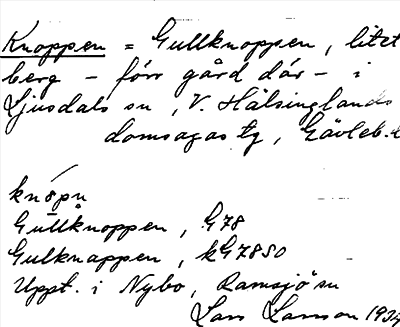 Knoppen = Gullknoppen, litet
berg - förr gård där - i
Ljusdals sn, V. Hälsinglands
domsagas tg, Gävleb.l
knöpn
Gullknoppen, G78
Gulknappen, kG7850
Uppt. i Nybo, Ramsjö sn
Lars Larsson